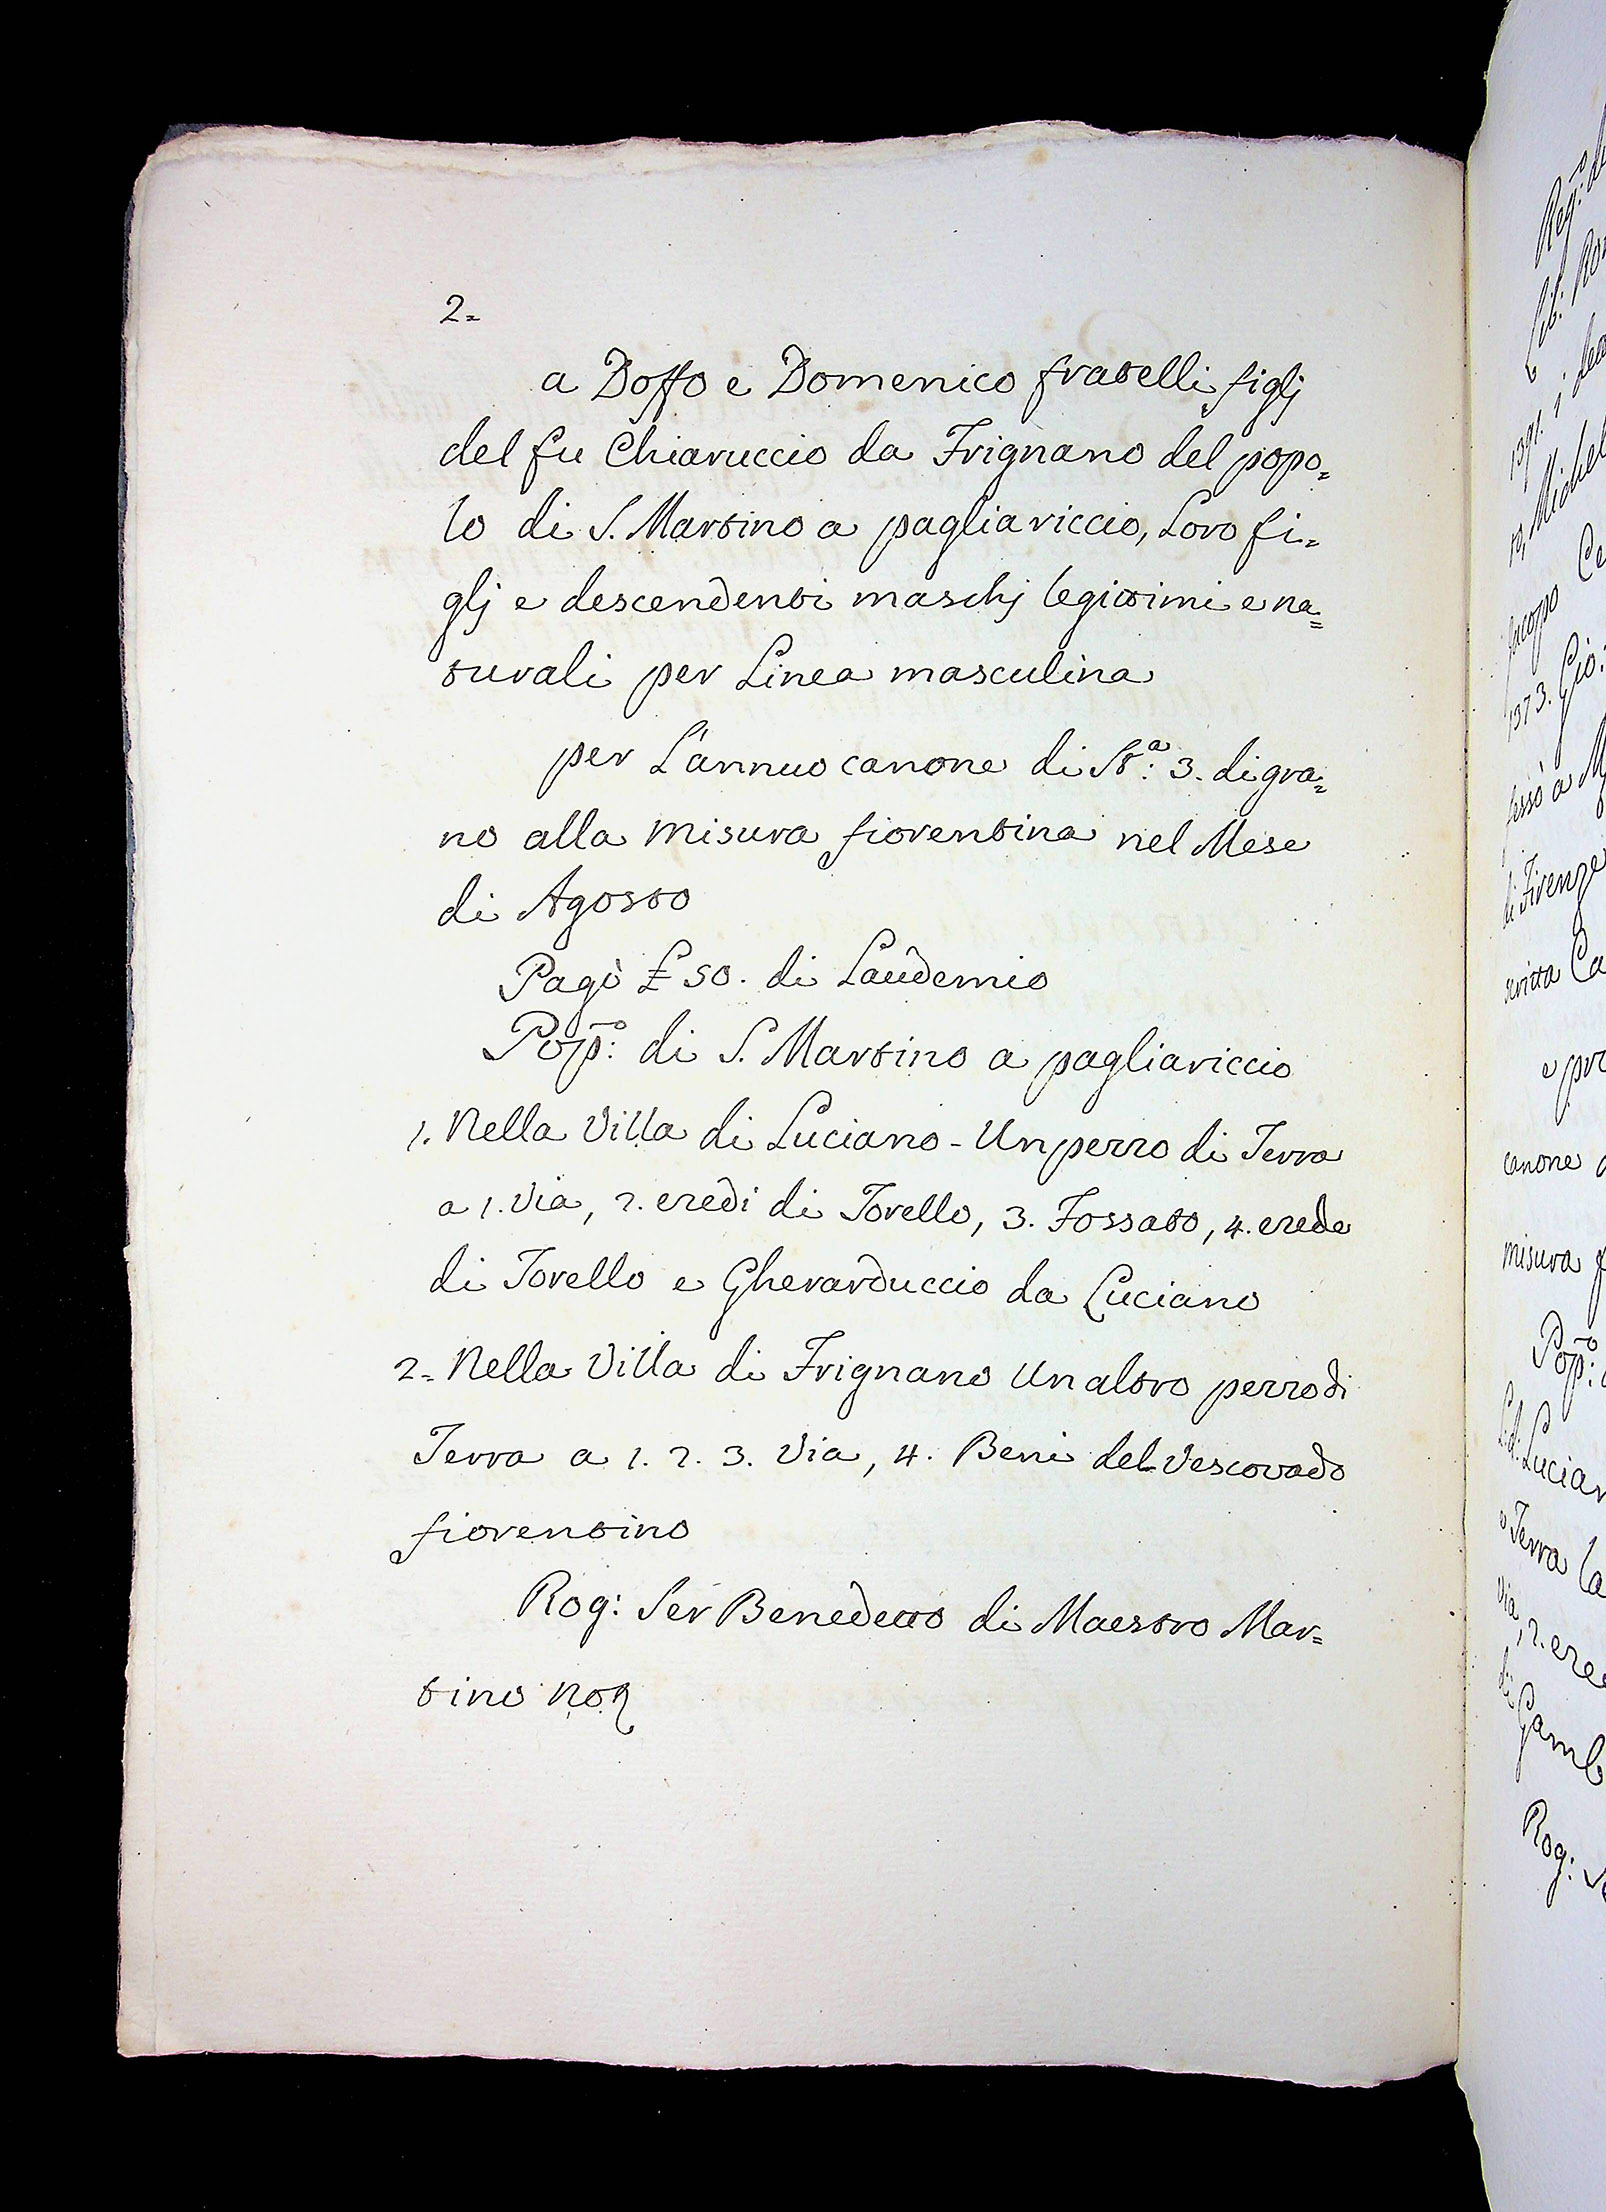 2=
a Doffo e Domenico fratelli figlj
del fu Chiaruccio da Frignano del popo=
lo di S. Martino a pagliariccio, Loro fi=
glj e descendenti maschj legittimi e na=
turali per Linea masculina
per L'annuo canone di St:ª 3. di gra=
no alla misura fiorentina nel Mese
di Agosto
Pagò £ 50. di Laudemio
Pop:º di S. Martino a pagliariccio
1. Nella Villa di Luciano - Un pezzo di Terra
a 1. Via, 2. eredi di Torello, 3. Fossato, 4. erede
di Torello e Gherarduccio da Luciano
2= Nella Villa di Frignano Un altro pezzo di
Terra a 1. 2. 3. Via, 4. Beni del Vescovado
fiorentino
Rog: Ser Benedetto di Maestro Mar=
tino Not
Reg:º
Lib:
1391.
Michel
Jacopo
1373. Gio:
a
di Firenze
scritta
e
canone
misura
Pop:º
Lucian
Terra
Via, 2.
di
Rog: